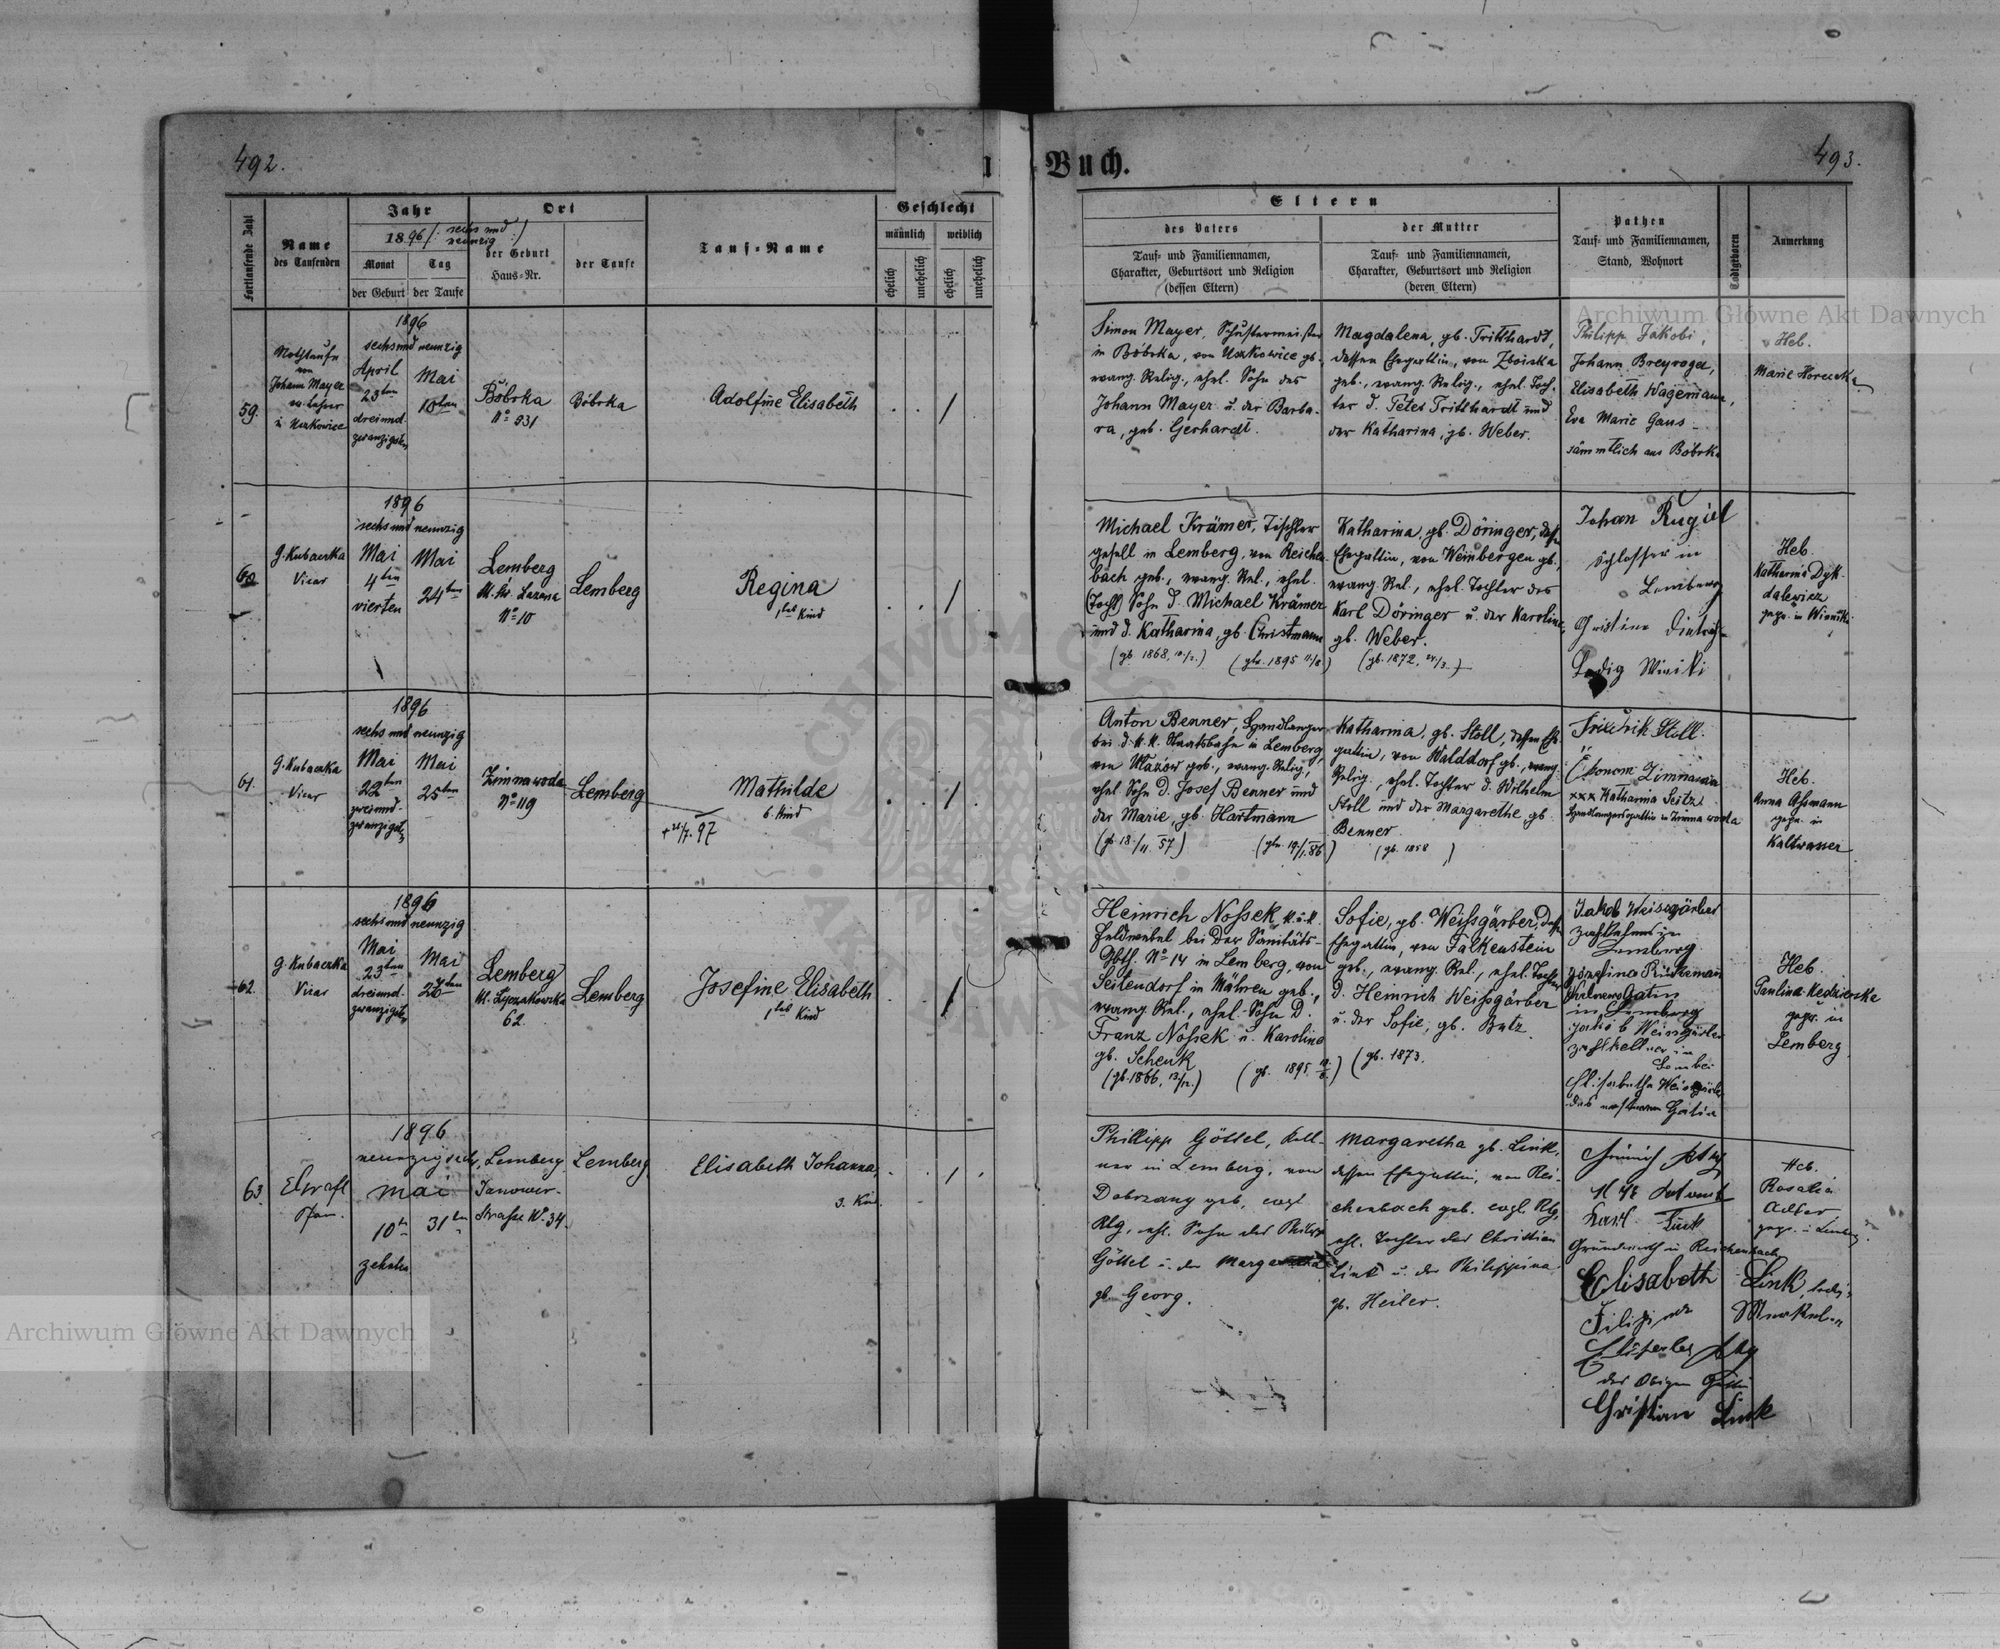 492.
Buch.
493.
Fortlaufende Zahl
Name
des Taufenden
Jahr
1896 /: sechs und
neunzig :/
Monat
Tag
der Geburt
der Taufe
Ort
der Geburt
Haus-Nr.
der Taufe
Tauf-Name
Geschlecht
männlich
weiblich
ehelich
unehelich
ehelich
unehelich
Eltern
des Vaters
Tauf- und Familiennamen,
Charakter, Geburtsort und Religion
(dessen Eltern)
der Mutter
Tauf- und Familiennamen,
Charakter, Geburtsort und Religion
(deren Eltern)
Pathen
Tauf- und Familiennamen,
Stand, Wohnort
Todtgeboren
Anmerkung
59.
Nothtaufe
von
Johann Mayer
Lehrer
1896
sechs und neunzig
April
23ten
dreiund-
zwanzigsten
Mai
10ten
Bóbrka
No 931
Bóbrka
Adolfine Elisabeth
Simon Mayer, Schustermeister
in Bóbrka, von Uszkowice gb.,
evang. Relig., ehel. Sohn des
Johann Mayer u. der Barba-
ra, geb. Gerhardt.
Magdalena, gb. Tritthardt,
dessen Ehegattin, von Zboiska
geb., evang. Relig., ehel. Toch-
ter d. Peter Tritthardt und
der Katharina, gb. Weber.
Philipp Jakobi,
Johann Breyvogel,
Elisabeth Wagemann,
Eva Marie Gans -
sämmtlich aus Bóbrka
Heb.
Marie
60
G. Kubaczka
Vicar
1896
sechs und neunzig
Mai
4ten
vierten
Mai
24ten
Lemberg
No 10
Lemberg
Regina
1tes Kind
Michael Krämer, Tischler
gesell in Lemberg, von Reichen
bach geb., evang. Rel., ehel.
Sohn d. Michael Krämer
und d. Katharina, gb. Christmann
(gb. 1868, 10/2.)
(gtr. 1895 11/8.)
Katharina, gb. Döringer, dess.
Ehegattin, von Weinbergen gb.,
evang. Rel., ehel. Tochter des
Karl Döringer u. der Karoline,
gb. Weber.
(gb. 1872, 24/3.)
Johan Rugiel
Schlosser in
Lemberg
Ledig Winiki
Heb.
Katharina Dyk-
dalewicz
gepr. in Winniki
61.
G. Kubaczka
Vicar
1896
sechs und neunzig
Mai
22ten
zweiund-
zwanzigsten
Mai
25ten
Zimnawoda
No 119
Lemberg
Mathilde
6. Kind
Anton Benner, Handlanger
bei d. k. k. Staatsbahn in Lemberg,
evang. Relig.,
ehel. Sohn d. Josef Benner und
der Marie, gb. Hartmann
(gb. 18/11. 57)
(gtr. 19/1. 86.)
Katharina, gb. Stoll, dessen Ehe-
gattin, von Walddorf gb., evang.
Relig., ehel. Tochter d. Wilhelm
Stoll und der Margarethe gb.
Benner.
(gb. 1858 )
Fridrik Stoll.
Ökonom Zimnawoda
xxx Katharina Seitz
Heb.
Anna Assmann
gepr. in
Kaltwasser
62.
G. Kubaczka
Vicar
1896
sechs und neunzig
Mai
23ten
dreiund-
zwanzigsten
Mai
26ten
Lemberg
Lyczakowska
62.
Lemberg
Josefine Elisabeth
1tes Kind
Heinrich Nossek, k. u. k.
Feldwebel bei der Sanitäts-
Abth. No 14 in Lemberg, von
Seitendorf in Mähren geb.,
evang. Rel., ehel. Sohn d.
Franz Nossek u. Karoline
gb. Schenk
(gb. 1866, 12/12.)
Sofie, gb. Weissgärber, dess.
Ehegattin, von Falkenstein
geb., evang. Rel., ehel. Tochter
d. Heinrich Weissgärber
u. der Sofie, gb. Butz.
(gb. 1873.
Jakob Weissgärber
in
Lemberg
in Lemberg
Jakob Weissgärber
Zahlkellner in
Heb.
Paulina Kedzierska
gepr. in
Lemberg
63
Pfarr.
1896
neunzig sechs
Mai
10ten
zehnten
31ten
Lemberg
Janower-
Strasse No. 34.
Lemberg
Elisabeth Johanna,
3. Kind
Phillipp Göttel, Kell-
ner in Lemberg, von
geb., evgl.
Rlg, ehl. Sohn des Philipp
Göttel u. der
gb. Georg.
Margaretha gb. Link,
dessen Ehegattin, von Rei-
chenbach geb. evgl. Rlg,
ehl. Tochter des Christian
Link u. der Philippina
gb. Heiler.
Karl Link
Grundwirth in Reichenbach
Elisabeth Link, ledig
der Obigen Gattin
Christian Link
Heb.
Rosalia
Adler
gepr. i. Lemberg
Archiwum Główne Akt Dawnych
Archiwum Główne Akt Dawnych